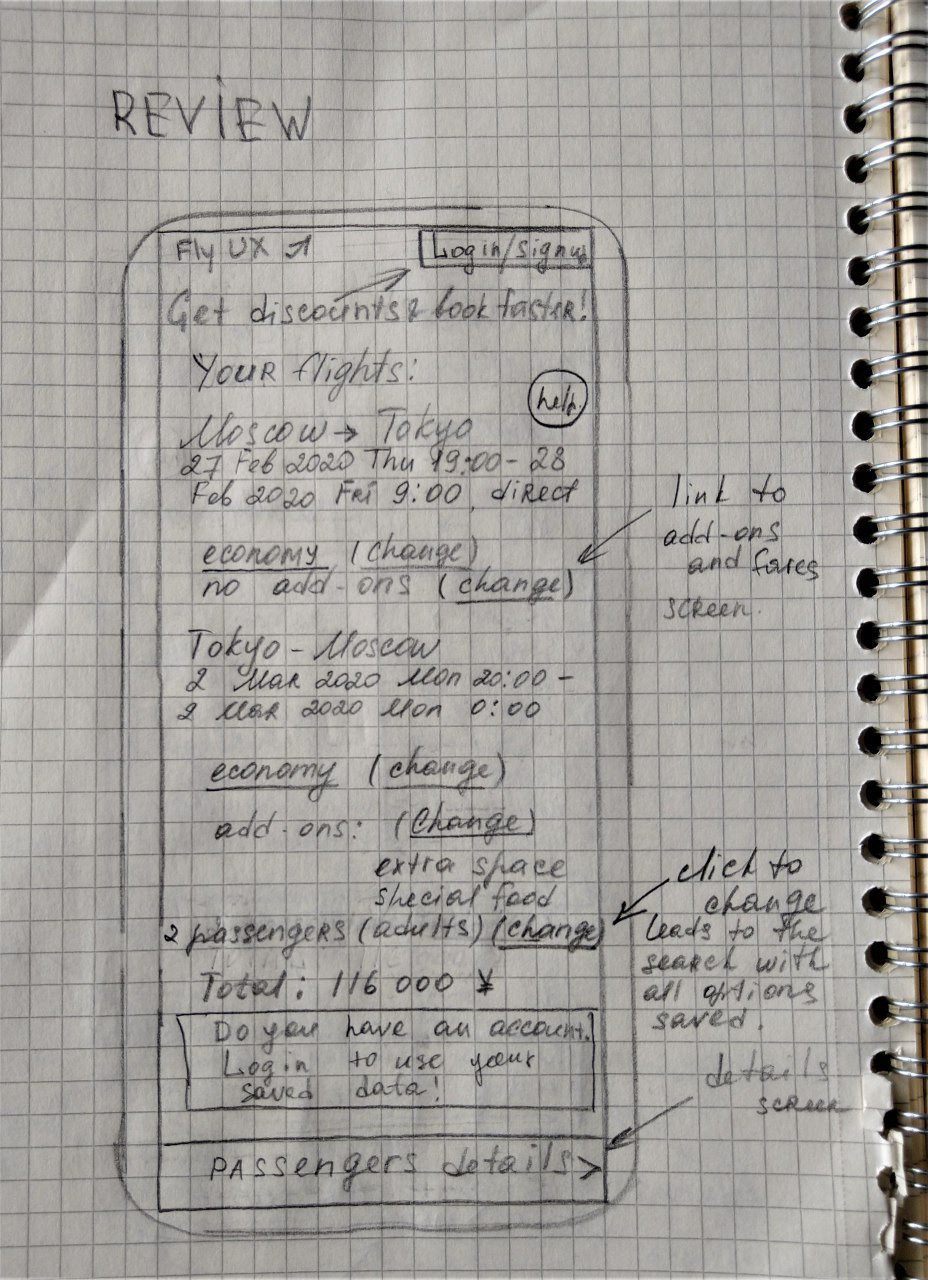 REVIEW
Fly UX
Login/Signup
Get discounts & book faster!
Your flights:
help
Moscow → Tokyo
27 Feb 2020 Thu 19:00 - 28
Feb 2020 Fri 9:00, direct
economy (change)
no add-ons (change)
link to
add-ons
and fares
screen.
Tokyo - Moscow
2 Mar 2020 Mon 20:00 -
2 Mar 2020 Mon 0:00
economy (change)
add-ons: (Change)
extra space
special food
2 passengers (adults) (change)
click to
change
leads to the
search with
all options
saved.
Total: 116 000 ¥
Do you have an account?
Login to use your
saved data!
details
screen
PASSengers details >